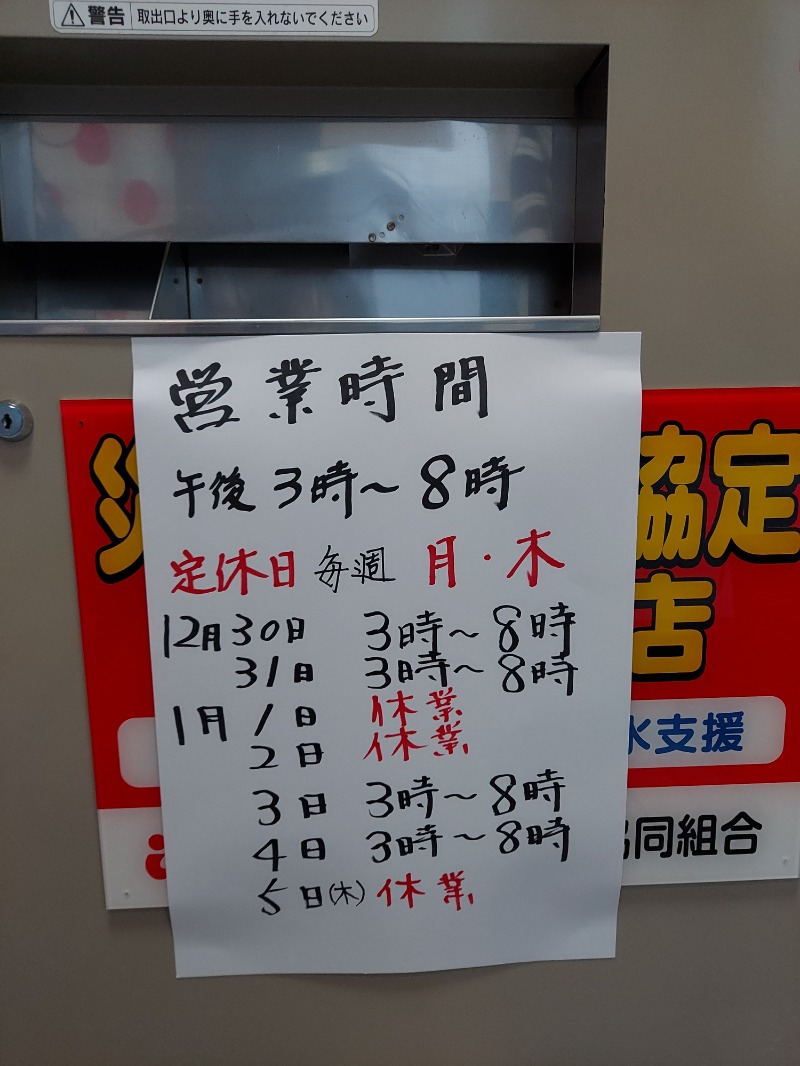 警告 取出口より奥に手を入れないでください
営業時間
午後 3時〜8時
定休日 毎週 月・木
12月30日 3時〜8時
31日 3時〜8時
1月1日 休業
2日 休業
3日 3時〜8時
4日 3時〜8時
5日(木) 休業
災 協定
店
水支援
同組合